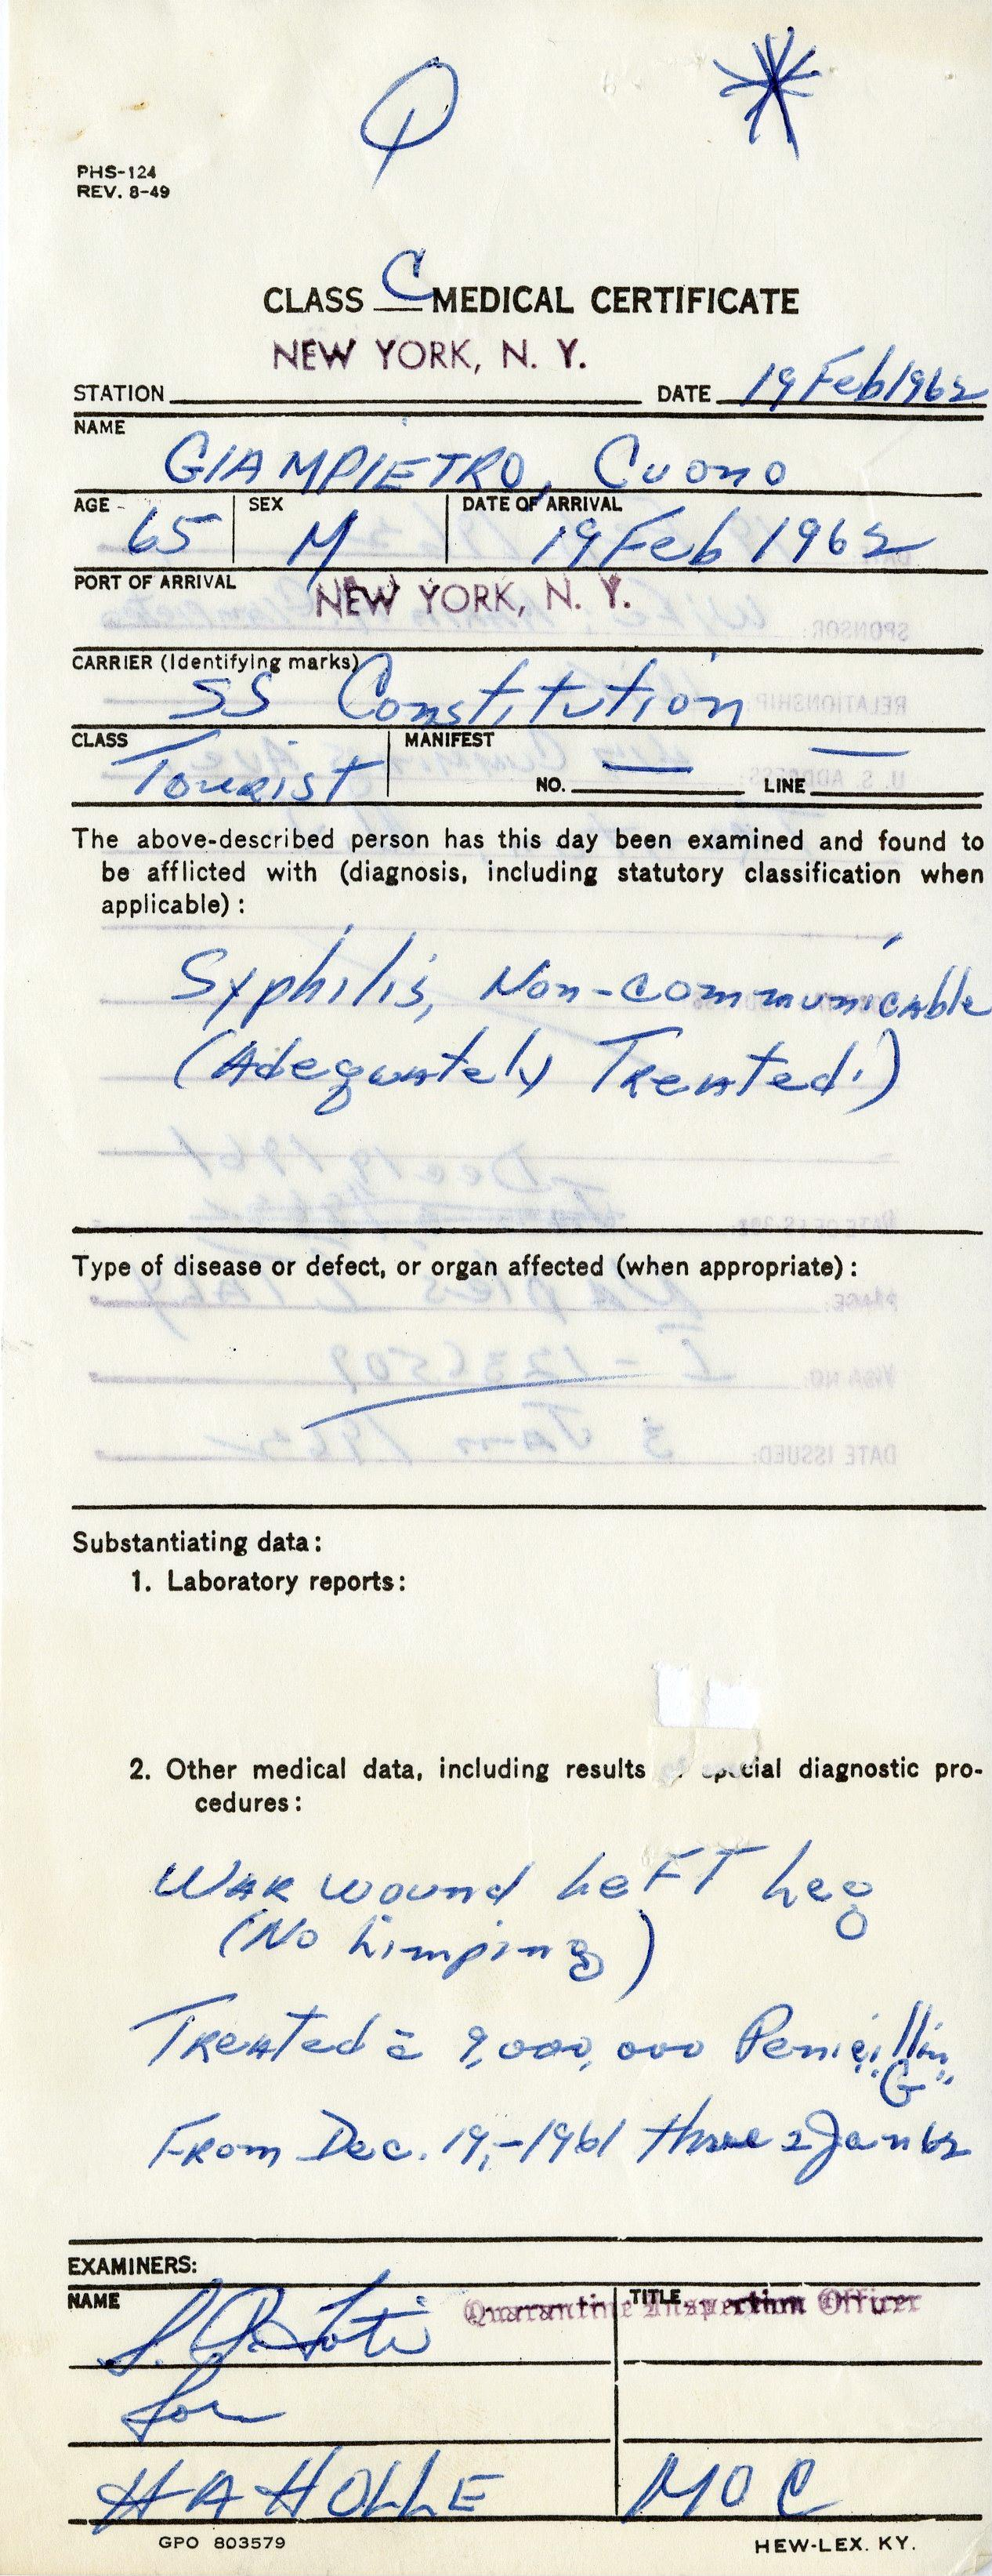 PHS-124
REV. 8-49
CLASS C MEDICAL CERTIFICATE
NEW YORK, N. Y.
STATION DATE 19 Feb 1962
NAME
GIAMPIETRO, Cuono
AGE 65 SEX M DATE OF ARRIVAL 19 Feb 1962
PORT OF ARRIVAL NEW YORK, N. Y.
CARRIER (Identifying marks)
SS Constitution
CLASS Tourist MANIFEST
NO. — LINE —
The above-described person has this day been examined and found to
be afflicted with (diagnosis, including statutory classification when
applicable):
Syphilis, Non-communicable
(Adequately Treated.)
Type of disease or defect, or organ affected (when appropriate):
Substantiating data:
1. Laboratory reports:
2. Other medical data, including results special diagnostic pro-
cedures:
War wound Left Leg
(No Limping)
Treated c̄ 9,000,000 Penicillin
"G"
From Dec. 19,-1961 thru 2 Jan 62
EXAMINERS:
NAME TITLE
Quarantine Inspection Officer
for
H A HOLLE MOC
GPO 803579 HEW-LEX. KY.